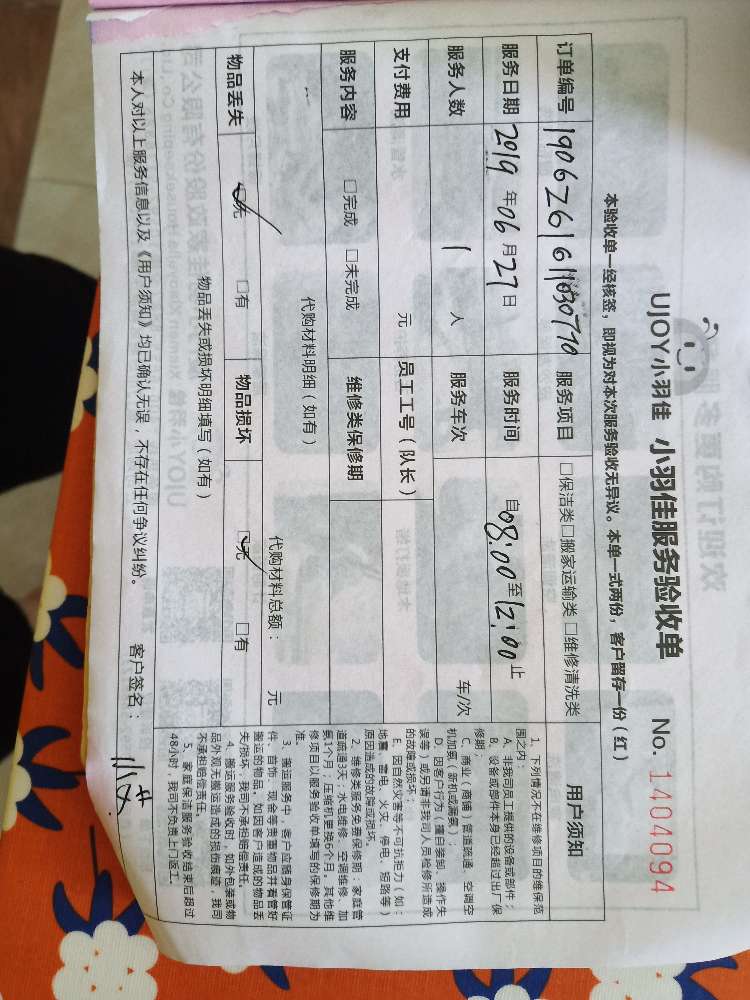 UJOY小羽佳 小羽佳服务验收单 No. 1404094
本验收单一经核签，即视为对本次服务验收无异议。本单一式两份，客户留存一份（红）
订单编号 190626161103070 服务项目 □保洁类□搬家运输类 □维修清洗类
服务日期 2019 年 06 月 27 日 服务时间 自 08:00 至 12:00 止
服务人数 1 人 服务车次 车/次
支付费用 元 员工工号（队长）
服务内容 □完成 □未完成 维修类保修期
代购材料明细（如有） 代购材料总额： 元
物品丢失 □无 □有 物品损坏 □无 □有
物品丢失或损坏明细填写（如有）
本人对以上服务信息以及《用户须知》均已确认无误，不存在任何争议纠纷。 客户签名：
用户须知
1、下列情况不在维修项目的维保范
围之内：
A、非我司员工提供的设备或部件；
B、设备或部件本身已经超过出厂保
修期；
C、商业（商铺）管道疏通、空调空
机加氨（新机或漏氨）；
D、因客户行为（擅自装卸、操作失
误等）或另请非我司人员检修所造成
的故障或损坏；
E、因自然灾害等不可抗拒力（如：
地震、雷电、火灾、停电、短路等）
原因造成的故障或损坏。
2、维修类服务免费保修期：家庭管
道疏通3天；水电维修、空调维修、加
氨1个月；压缩机更换6个月，其他维
修项目以服务验收单填写的保修期为
准。
3、搬运服务中，客户应随身保管证
件、首饰、现金等贵重物品并看管好
搬运的物品，如因客户造成的物品丢
失/损坏，我司不承担赔偿责任。
4、搬运服务验收时，如外包装或物
品外观无搬运造成的损伤痕迹，我司
不承担赔偿责任。
5、家庭保洁服务验收结束后超过
48小时，我司不负责上门返工。